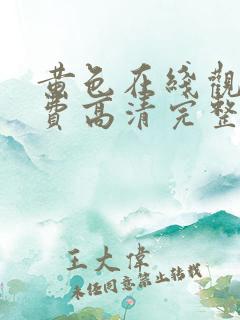 黃色在綫觀
費高清完整
王大偉
未经同意禁止转载